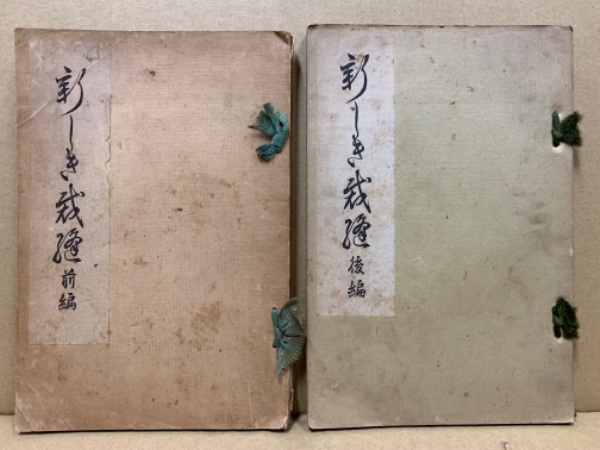 新しき裁縫 前編
新しき裁縫 後編